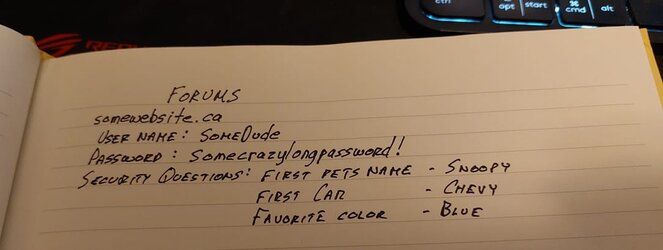 opt start ⌘ cmd alt
FORUMS
somewebsite.ca
USER NAME: SOMEDUDE
PASSWORD: Somecrazylongpassword!
SECURITY QUESTIONS: FIRST PETS NAME - SNOOPY
FIRST CAR - CHEVY
FAVORITE COLOR - BLUE